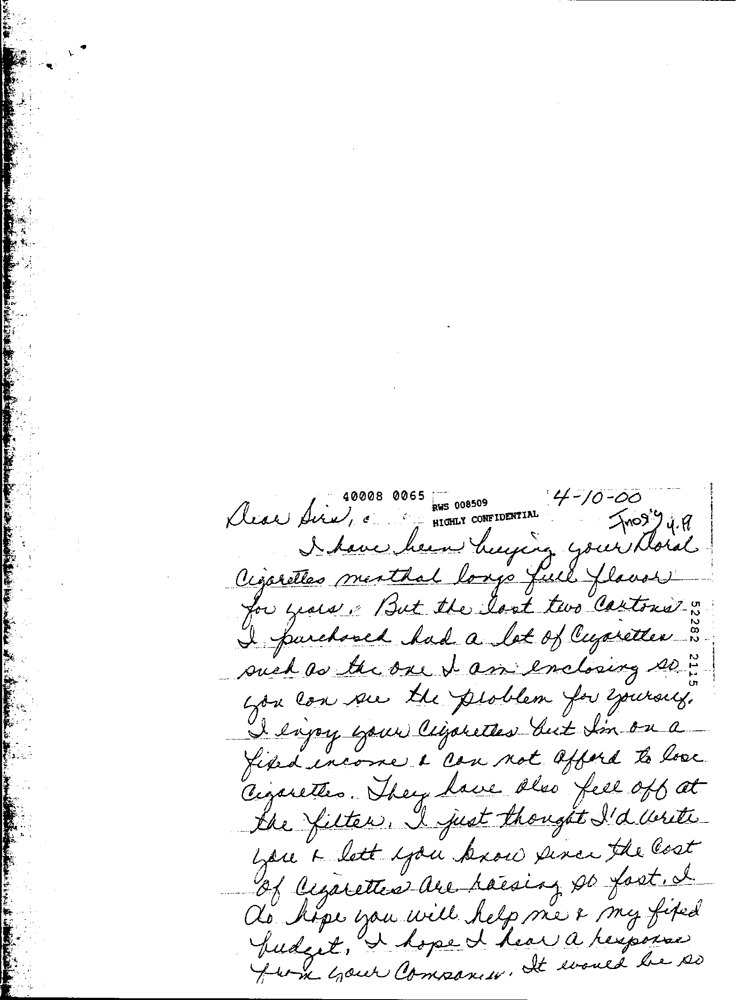 40008 0065
RWS 008509
HIGHLY CONFIDENTIAL
4-10-00
Dear Sirs,
I have been buying your Doral
Cigarettes menthal longs full flavor
for years. But the last two Cartons
I purchased had a lot of Cigarettes
such as the one I am enclosing so
you can see the problem for yourself.
I enjoy your Cigarettes but I'm on a
fixed income & can not afford to lose
Cigarettes. They have also fell off at
the filter. I just thought I'd write
you & lett you know since the Cost
of Cigarettes are raising so fast. I
do hope you will help me & my fixed
budget, I hope I hear a response
from your Companies. It would be so
52282 2115